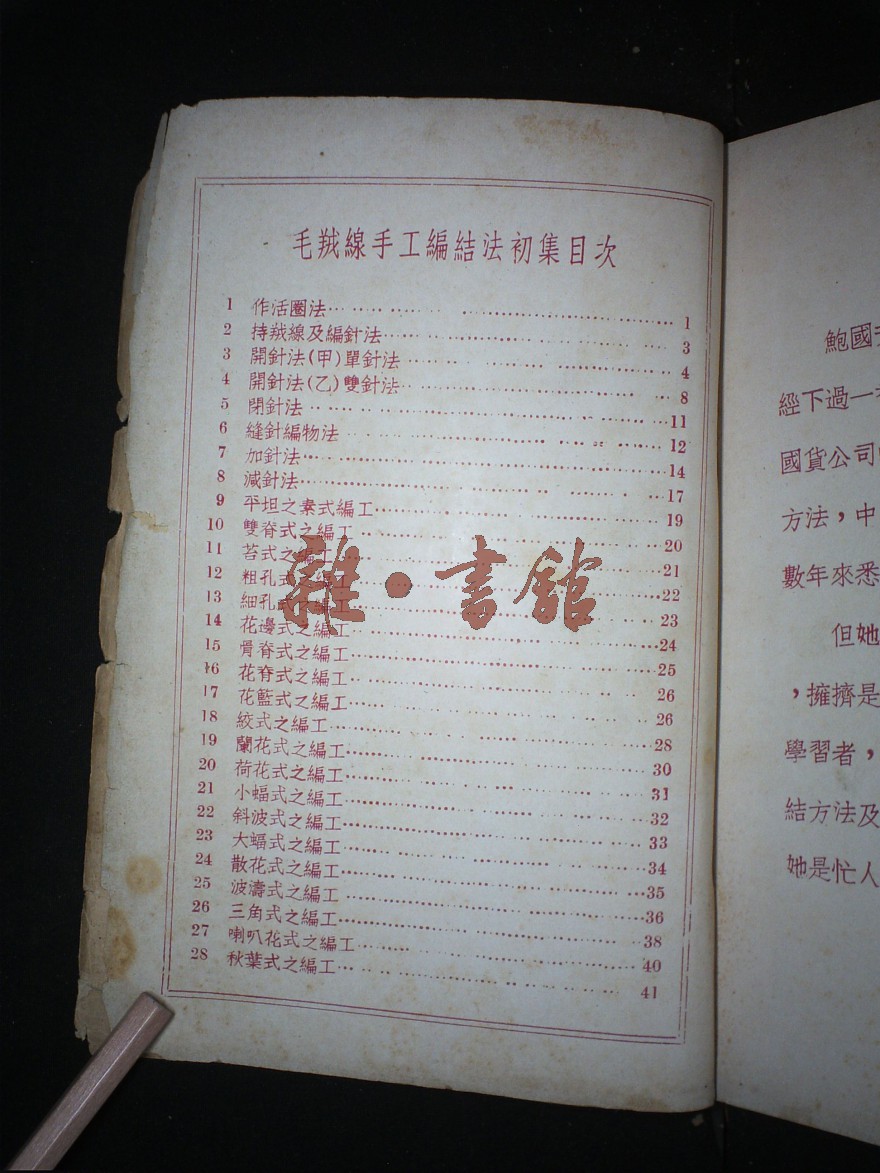 毛羢線手工編結法初集目次
1 作活圈法 1
2 持羢線及編針法 3
3 開針法(甲)單針法 4
4 開針法(乙)雙針法 8
5 閉針法 11
6 縫針編物法 12
7 加針法 14
8 減針法 17
9 平坦之素式編工 19
10 雙脊式之編工 20
11 苔式之編工 21
12 粗孔式之編工 22
13 細孔式之編工 23
14 花邊式之編工 24
15 骨脊式之編工 25
16 花脊式之編工 26
17 花籃式之編工 26
18 絞式之編工 28
19 蘭花式之編工 30
20 荷花式之編工 31
21 小蝠式之編工 32
22 斜波式之編工 33
23 大蝠式之編工 34
24 散花式之編工 35
25 波濤式之編工 36
26 三角式之編工 38
27 喇叭花式之編工 40
28 秋葉式之編工 41
雜·書館
鮑國
經下過一
國貨公司
方法，中
數年來悉
但她
，擁擠是
學習者，
結方法及
她是忙人